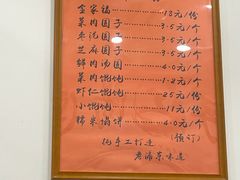 全家福 18元/份
菜肉团子 3.5元/个
枣泥团子 3.5元/个
芝麻团子 3.5元/个
鲜肉汤圆 4.0元/个
菜肉馄饨 1.2元/个
虾仁馄饨 25元/份
小馄饨 11元/份
糯米馅饼 4.0元/个
(预订)
纯手工打造
老浦东味道